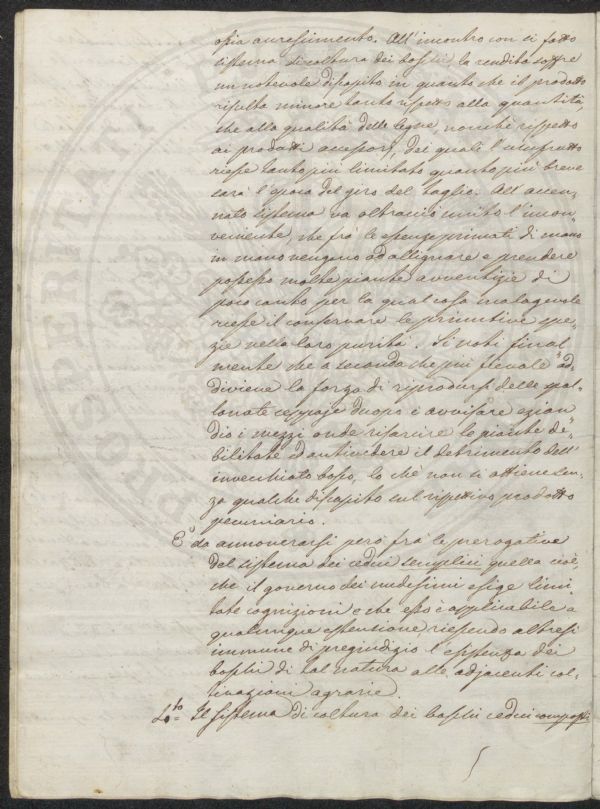 ossia accrescimento. All'incontro con si fatto
sistema di coltura dei boschi, la rendita soffre
un notevole discapito in quanto che il prodotto
risulta minore tanto rispetto alla quantità,
che alla qualità delle legne, nonchè rispetto
ai prodotti accessorj, dei quali l'usufrutto
riesce tanto più limitato quanto più breve
sarà l'epoca del giro del taglio. All'accen-
nato sistema va oltracciò unito l'incon-
veniente, che frà le essenze primati di mano
in mano vengono ad allignare e prendere
possesso molte piante avventizie di
poco conto per la qual cosa
riesce il conservare le primitive spe-
zie nella loro purità. Si noti final-
mente che a seconda che più fievole ad-
diviene la forza di riprodursi delle
ceppaje duopo è avvisare ezian-
dio i mezzi onde risarcire le piante de-
bilitate ed antivedere il detrimento dell'
invecchiato bosco, lo chè non si ottiene sen-
za qualche discapito sul rispettivo prodotto
pecuniario.
E' da annoverarsi però frà le prerogative
del sistema dei cedui semplici quella cioè,
che il governo dei medesimi esige limi-
tate cognizioni e che esso è applicabile a
qualunque estensione, riescendo altresì
immune di pregiudizio l'esistenza dei
boschi di tal natura alle adjacenti col-
tivazioni agrarie.
4.to Il sistema di coltura dei boschi cedui composti
PROSPERITATI